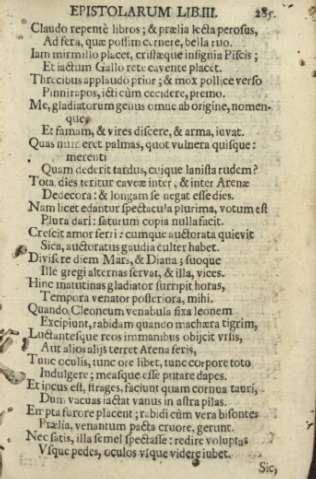 EPISTOLARUM LIB.III. 285.
Claudo repentè libros; & prælia lecta perosus,
Ad fera, quæ possim cernere, bella ruo.
Iam mirmillo placet, cristæque insignia Piscis;
Et iactum Gallo rete cavente placet.
Threcibus applaudo prior; & mox pollice verso
Pinnirapos, icti cùm cecidere, premo.
Me, gladiatorum genus omne ab origine, nomen-
que,
Et famam, & vires discere, & arma, iuvat.
Quas nunc eret palmas, quot vulnera quisque:
merenti
Quam dederit tardus, cuique lanista rudem?
Tota dies teritur caveæ inter, & inter Arenæ
Dedecora: & longam se negat esse dies.
Nam licet edantur spectacula plurima, votum est
Plura dari: saturum copia nulla facit.
Crescit amor ferri: cumque auctorata quievit
Sica, auctoratus gaudia culter habet.
Divisere diem Mars, & Diana; suoque
Ille gregi alternas servat, & illa, vices.
Hinc matutinas gladiator surripit horas,
Tempora venator posteriora, mihi.
Quando Cleonæum venabula fixa leonem
Excipiunt, rabidam quando machæra tigrim,
Luctantesque reos immanibus objicit vrsis,
Aut alios alijs terret Arena feris,
Tunc oculis, tunc ore libet, tunc corpore toto
Indulgere; measque esse putare dapes.
Et iocus est, strages, faciunt quam cornua tauri,
Dum vacuas iactat vanus in astra pilas.
placent; rabidi cùm vera bisontes
Prælia, venantum pacta cruore, gerunt.
Nec satis, illa semel spectasse: redire voluptas
Vsque pedes, oculos vsque videre iubet.
Sic,